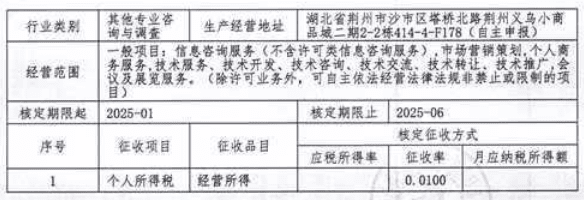 行业类别 其他专业咨询与调查 生产经营地址 湖北省荆州市沙市区塔桥北路荆州义乌小商品城二期2-2栋414-4-F178（自主申报）
经营范围 一般项目：信息咨询服务（不含许可类信息咨询服务），市场营销策划，个人商务服务，技术服务、技术开发、技术咨询、技术交流、技术转让、技术推广，会议及展览服务。（除许可业务外，可自主依法经营法律法规非禁止或限制的项目）
核定期限起 2025-01 核定期限止 2025-06
序号 征收项目 征收品目 核定征收方式
应税所得率 征收率 月应纳税所得额
1 个人所得税 经营所得 0.0100